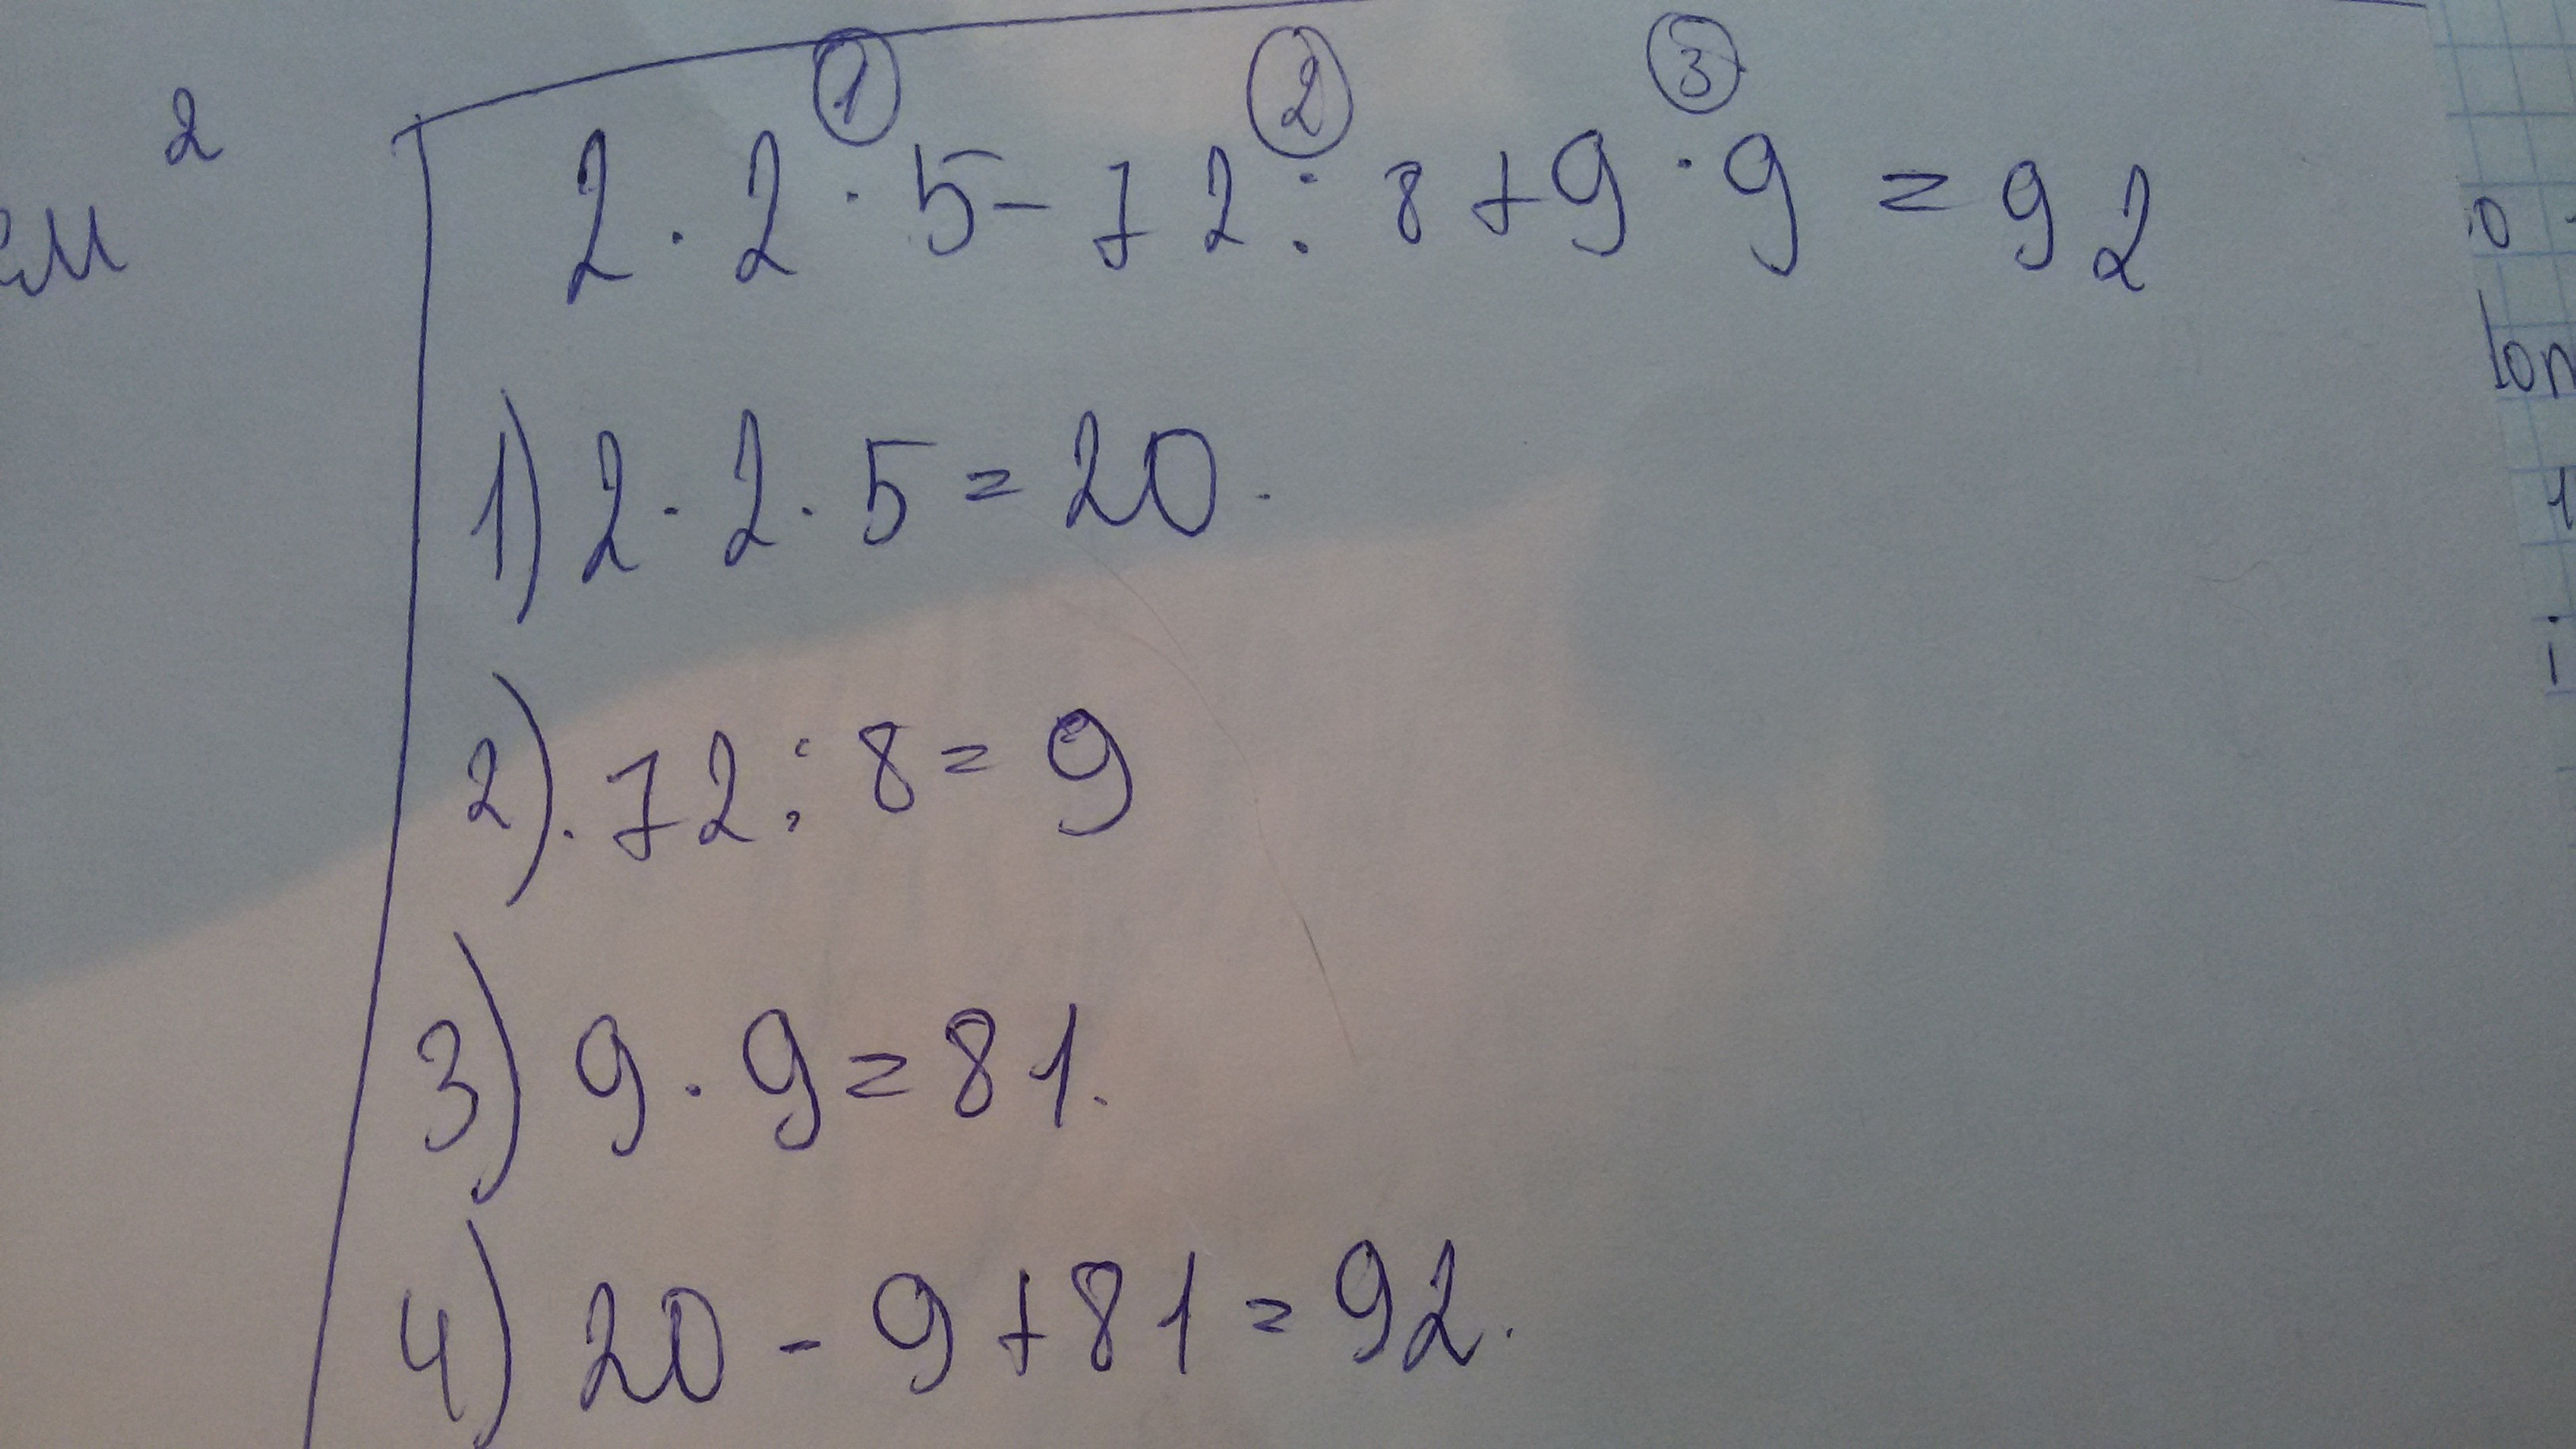 см²
① ② ③
2 · 2 · 5 - 72 : 8 + 9 · 9 = 92
1) 2 · 2 · 5 = 20.
2). 72 : 8 = 9
3) 9 · 9 = 81.
4) 20 - 9 + 81 = 92.